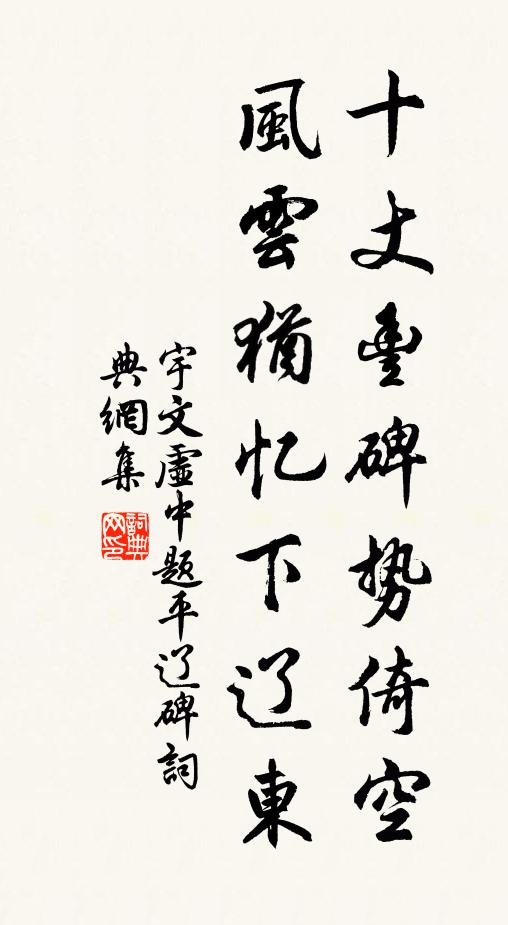 十丈豐碑勢倚空
風雲猶忆下辽東
宇文虛中題平辽碑詞
典網集
詞典网印